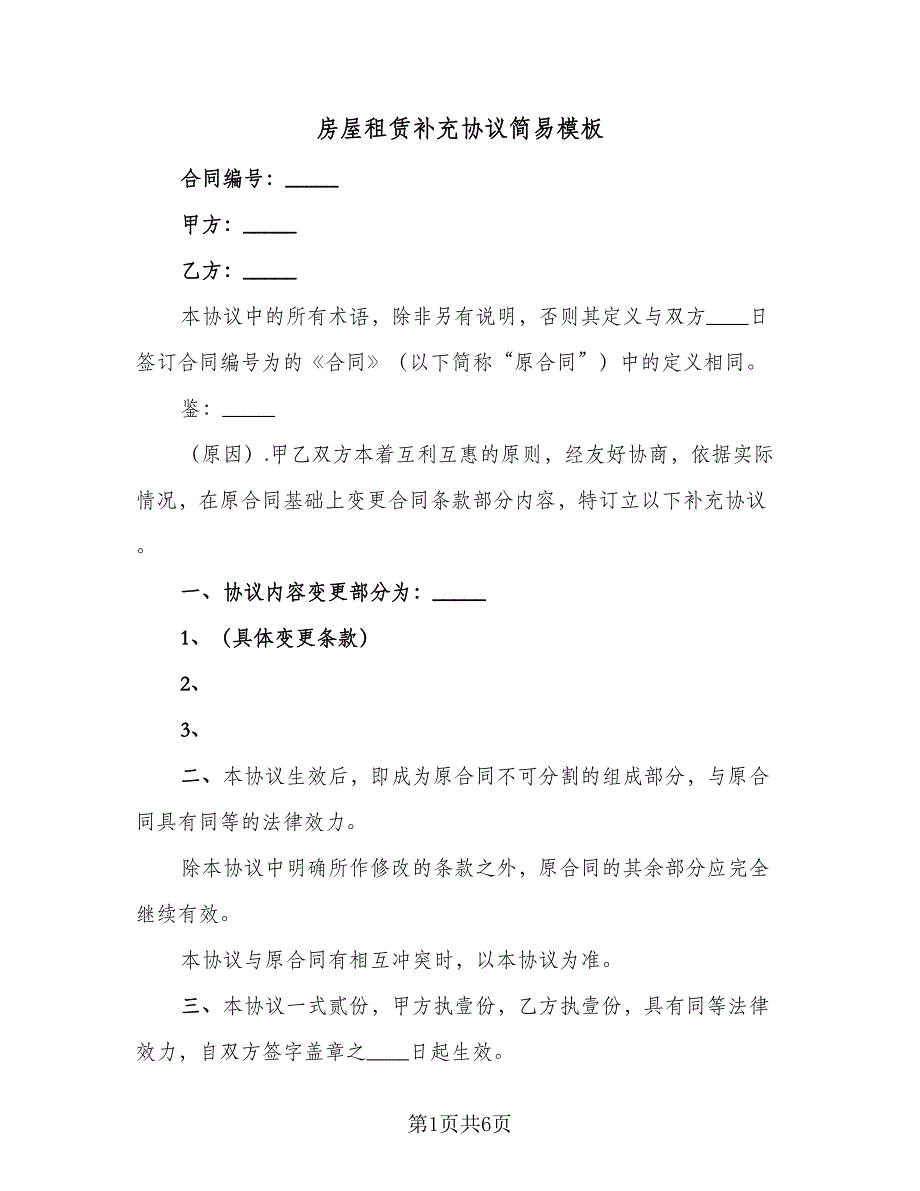 房屋租赁补充协议简易模板
合同编号：_____
甲方：_____
乙方：_____
本协议中的所有术语，除非另有说明，否则其定义与双方____日
签订合同编号为的《合同》（以下简称“原合同”）中的定义相同。
鉴：_____
（原因）.甲乙双方本着互利互惠的原则，经友好协商，依据实际
情况，在原合同基础上变更合同条款部分内容，特订立以下补充协议
。
一、协议内容变更部分为：_____
1、（具体变更条款）
2、
3、
二、本协议生效后，即成为原合同不可分割的组成部分，与原合
同具有同等的法律效力。
除本协议中明确所作修改的条款之外，原合同的其余部分应完全
继续有效。
本协议与原合同有相互冲突时，以本协议为准。
三、本协议一式贰份，甲方执壹份，乙方执壹份，具有同等法律
效力，自双方签字盖章之____日起生效。
第1页共6页